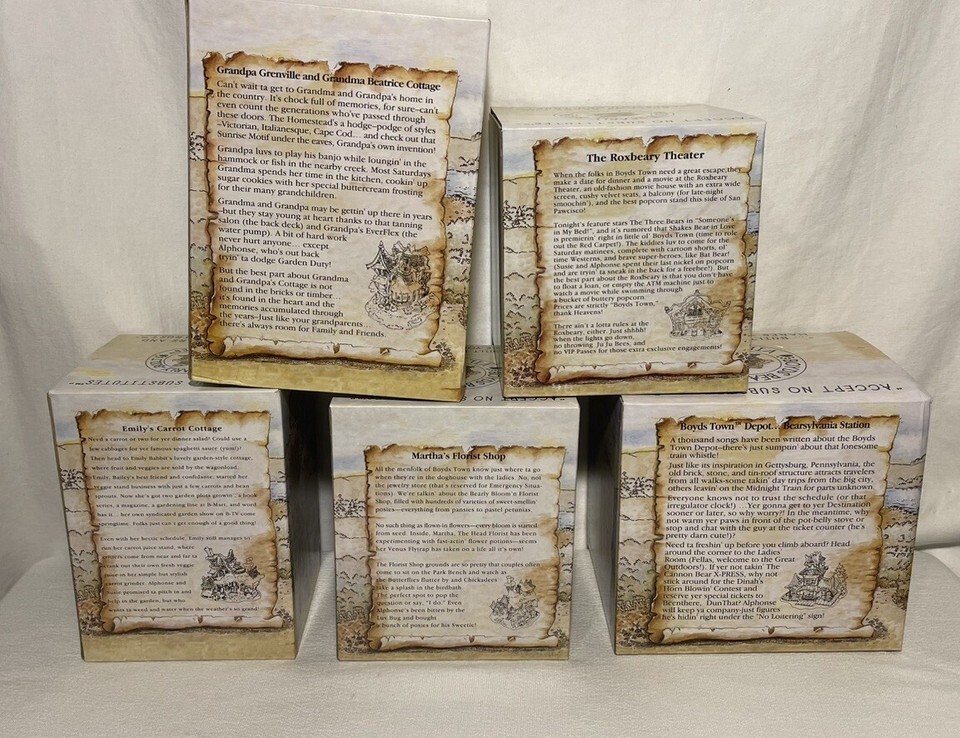 Grandpa Grenville and Grandma Beatrice Cottage
Can't wait ta get to Grandma and Grandpa's home in
the country. It's chock full of memories, for sure–can't
even count the generations who've passed through
these doors. The Homestead's a hodge–podge of styles
–Victorian, Italianesque, Cape Cod... and check out that
Sunrise Motif under the eaves, Grandpa's own invention!
Grandpa luvs to play his banjo while loungin' in the
hammock or fish in the nearby creek. Most Saturdays
Grandma spends her time in the kitchen, cookin' up
sugar cookies with her special buttercream frosting
for their many grandchildren.
Grandma and Grandpa may be gettin' up there in years
–but they stay young at heart thanks to that tanning
salon (the back deck) and Grandpa's EverFlex (the
water pump). A bit of hard work
never hurt anyone... except
Alphonse, who's out back
tryin' ta dodge Garden Duty!
But the best part about Grandma
and Grandpa's Cottage is not
found in the bricks or timber...
it's found in the heart and the
memories accumulated through
the years–Just like your grandparents
there's always room for Family and Friends.
The Roxbeary Theater
When the folks in Boyds Town need a great escape,they
make a date for dinner and a movie at the Roxbeary
Theater, an old-fashion movie house with an extra wide
screen, cushy velvet seats, a balcony (for late-night
smoochin'), and the best popcorn stand this side of San
Pawcisco!
Tonight's feature stars The Three Bears in "Someone's
in My Bed!", and it's rumored that Shakes Bear in Love
is premierin' right in little ol' Boyds Town (time to role
out the Red Carpet!). The kiddies luv to come for the
Saturday matinees, complete with cartoon shorts, ol'
time Westerns, and brave super-heroes, like Bat Bear!
(Susie and Alphonse spent their last nickel on popcorn
and are tryin' ta sneak in the back for a freebee!). But
the best part about the Roxbeary is that you don't have
to float a loan, or empty the ATM machine just to
watch a movie while swimming through
a bucket of buttery popcorn.
Prices are strictly "Boyds Town,"
thank Heavens!
There ain't a lotta rules at the
Roxbeary, either. Just shhhh!
when the lights go down,
no throwing Ju Ju Bees, and
no VIP Passes for those extra exclusive engagements!
SUBSTITUTES"™
"ACCEPT NO SUB
Emily's Carrot Cottage
Need a carrot or two for yer dinner salad? Could use a
few cabbages for yer famous spaghetti sauce (yum!)?
Then head to Emily Rabbit's lovely garden-style cottage,
where fruit and veggies are sold by the wagonload.
Emily, Bailey's best friend and confidante, started her
veggie stand business with just a few carrots and bean
sprouts. Now she's got two garden plots growin', a book
series, a magazine, a gardening line at B-Mart, and word
has it... her own syndicated garden show on B-TV come
springtime. Folks just can't get enough of a good thing!
Even with her hectic schedule, Emily still manages to
run her carrot juice stand, where
critters come from near and far to
crank out their own fresh veggie
juice in her simple but stylish
carrot grinder. Alphonse and
Susie promised ta pitch in and
help in the garden, but who
wants ta weed and water when the weather's so grand!
Martha's Florist Shop
All the menfolk of Boyds Town know just where ta go
when they're in the doghouse with the ladies. No, not
the jewelry store (that's reserved for Emergency Situa-
tions). We're talkin' about the Bearly Bloom'n Florist
Shop, filled with hundreds of varieties of sweet-smellin'
posies—everything from pansies to pastel petunias.
No such thing as flown-in flowers—every bloom is started
from seed. Inside, Martha, The Head Florist has been
experimenting with fast-actin' flower potions—seems
her Venus Flytrap has taken on a life all it's own!
The Florist Shop grounds are so pretty that couples often
come to sit on the Park Bench and watch as
the Butterflies flutter by and Chickadees
take a splash in the birdbath.
The perfect spot to pop the
question or say, "I do." Even
Alphonse's been bitten by the
Luv Bug and bought
a bunch of posies for his Sweetie!
Boyds Town™ Depot... Bearsylvania Station
A thousand songs have been written about the Boyds
Town Depot–there's just sumptin' about that lonesome
train whistle!
Just like its inspiration in Gettysburg, Pennsylvania, the
old brick, stone, and tin-roof structure attracts travelers
from all walks-some takin' day trips from the big city,
others leavin' on the Midnight Train for parts unknown.
Everyone knows not to trust the schedule (or that
irregulator clock!) ...Yer gonna get to yer Destination
sooner or later, so why worry?! In the meantime, why
not warm yer paws in front of the pot-belly stove or
stop and chat with the guy at the ticket counter (he's
pretty darn cute!)?
Need ta freshin' up before you climb aboard? Head
around the corner to the Ladies'
Room (Fellas, welcome to the Great
Outdoors!). If yer not takin' The
Cannon Bear X-PRESS, why not
stick around for the Dinah's
Horn Blowin' Contest and
reserve yer special tickets to
Beenthere, DunThat? Alphonse
will keep ya company-just figures
he's hidin' right under the "No Loitering" sign!